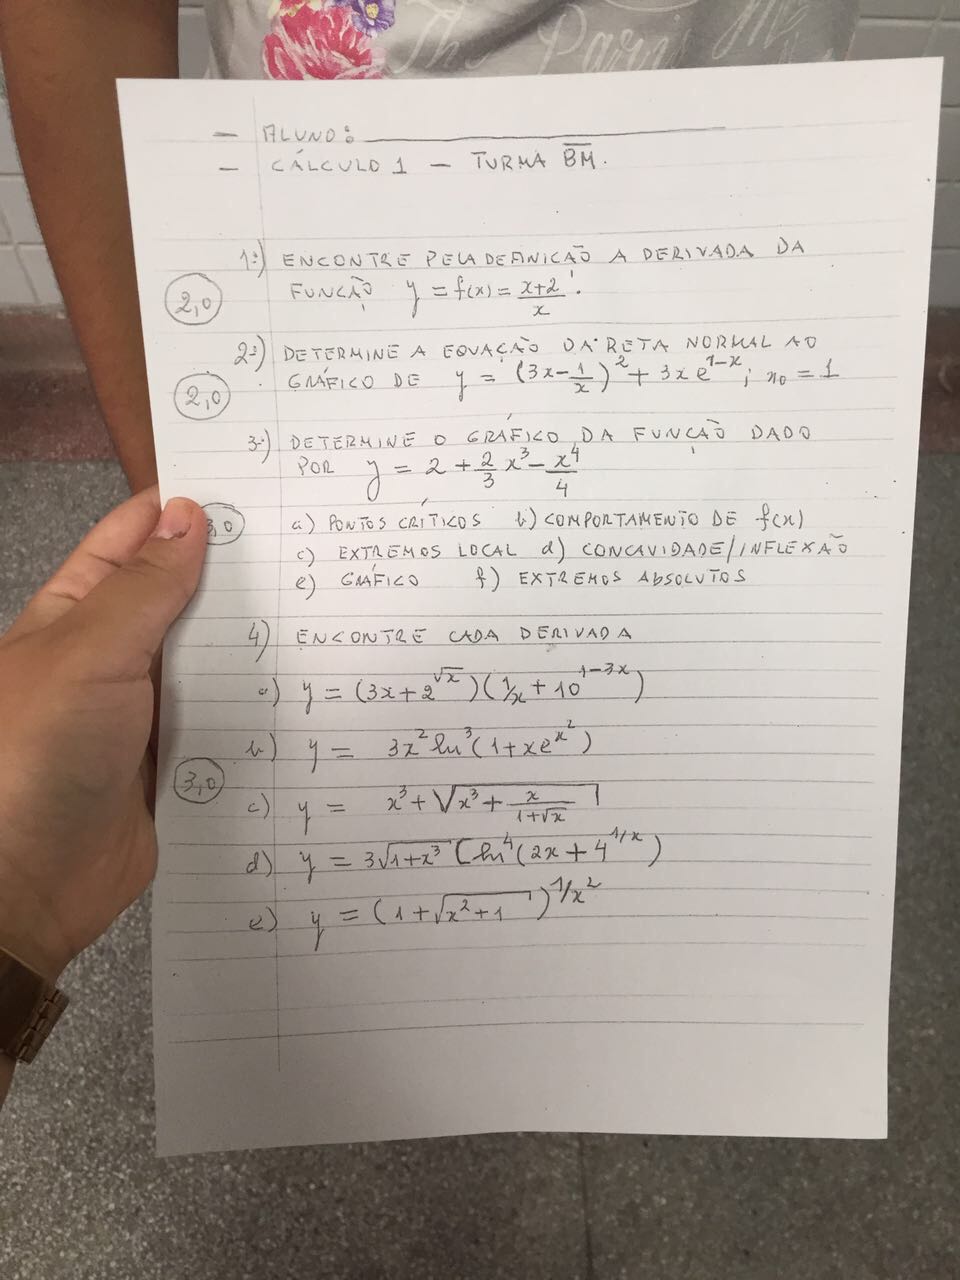 The Paris
— ALUNO: ____________
— CÁLCULO 1 — TURMA BM.
1.) ENCONTRE PELA DEFINIÇÃO A DERIVADA DA
2,0 FUNÇÃO y = f(x) = (x+2)/x.
2.) DETERMINE A EQUAÇÃO DA RETA NORMAL AO
2,0 GRÁFICO DE y = (3x - 1/x)² + 3x e^(1-x); x₀ = 1
3.) DETERMINE O GRÁFICO DA FUNÇÃO DADO
POR y = 2 + 2/3 x³ - x⁴/4
3,0 a) PONTOS CRÍTICOS b) COMPORTAMENTO DE f(x)
c) EXTREMOS LOCAL d) CONCAVIDADE/INFLEXÃO
e) GRÁFICO f) EXTREMOS ABSOLUTOS
4) ENCONTRE CADA DERIVADA
a) y = (3x + 2^√x)(1/x + 10^(1-3x))
b) y = 3x² ln³(1 + xe^(x²))
3,0
c) y = x³ + √(x³ + x/(1+√x))
d) y = 3√(1+x³) (ln⁴(2x + 4^(1/x))
e) y = (1 + √(x²+1))^(1/x²)